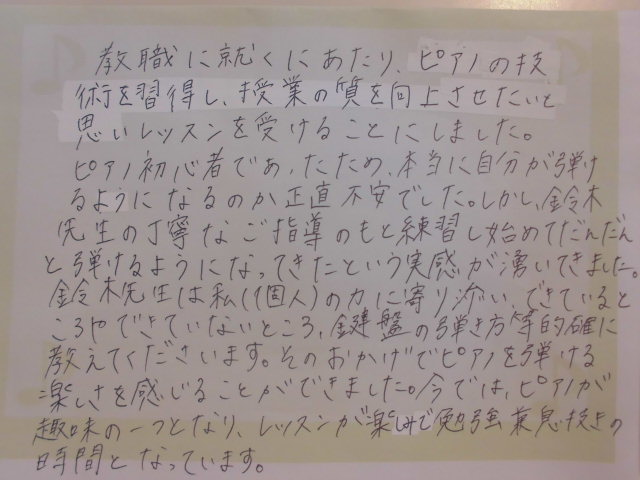 教職に就くにあたり、ピアノの技
術を習得し、授業の質を向上させたいと
思いレッスンを受けることにしました。
ピアノ初心者であったため、本当に自分が弾け
るようになるのか正直不安でした。しかし、鈴木
先生の丁寧なご指導のもと練習し始めてだんだん
と弾けるようになってきたという実感が湧いてきました。
鈴木先生は私(1個人)の力に寄り添い、できていると
ころやできていないところ、鍵盤の弾き方等的確に
教えてくださいます。そのおかげでピアノを弾ける
楽しさを感じることができました。今では、ピアノが
趣味の一つとなり、レッスンが楽しみで勉強兼息抜きの
時間となっています。